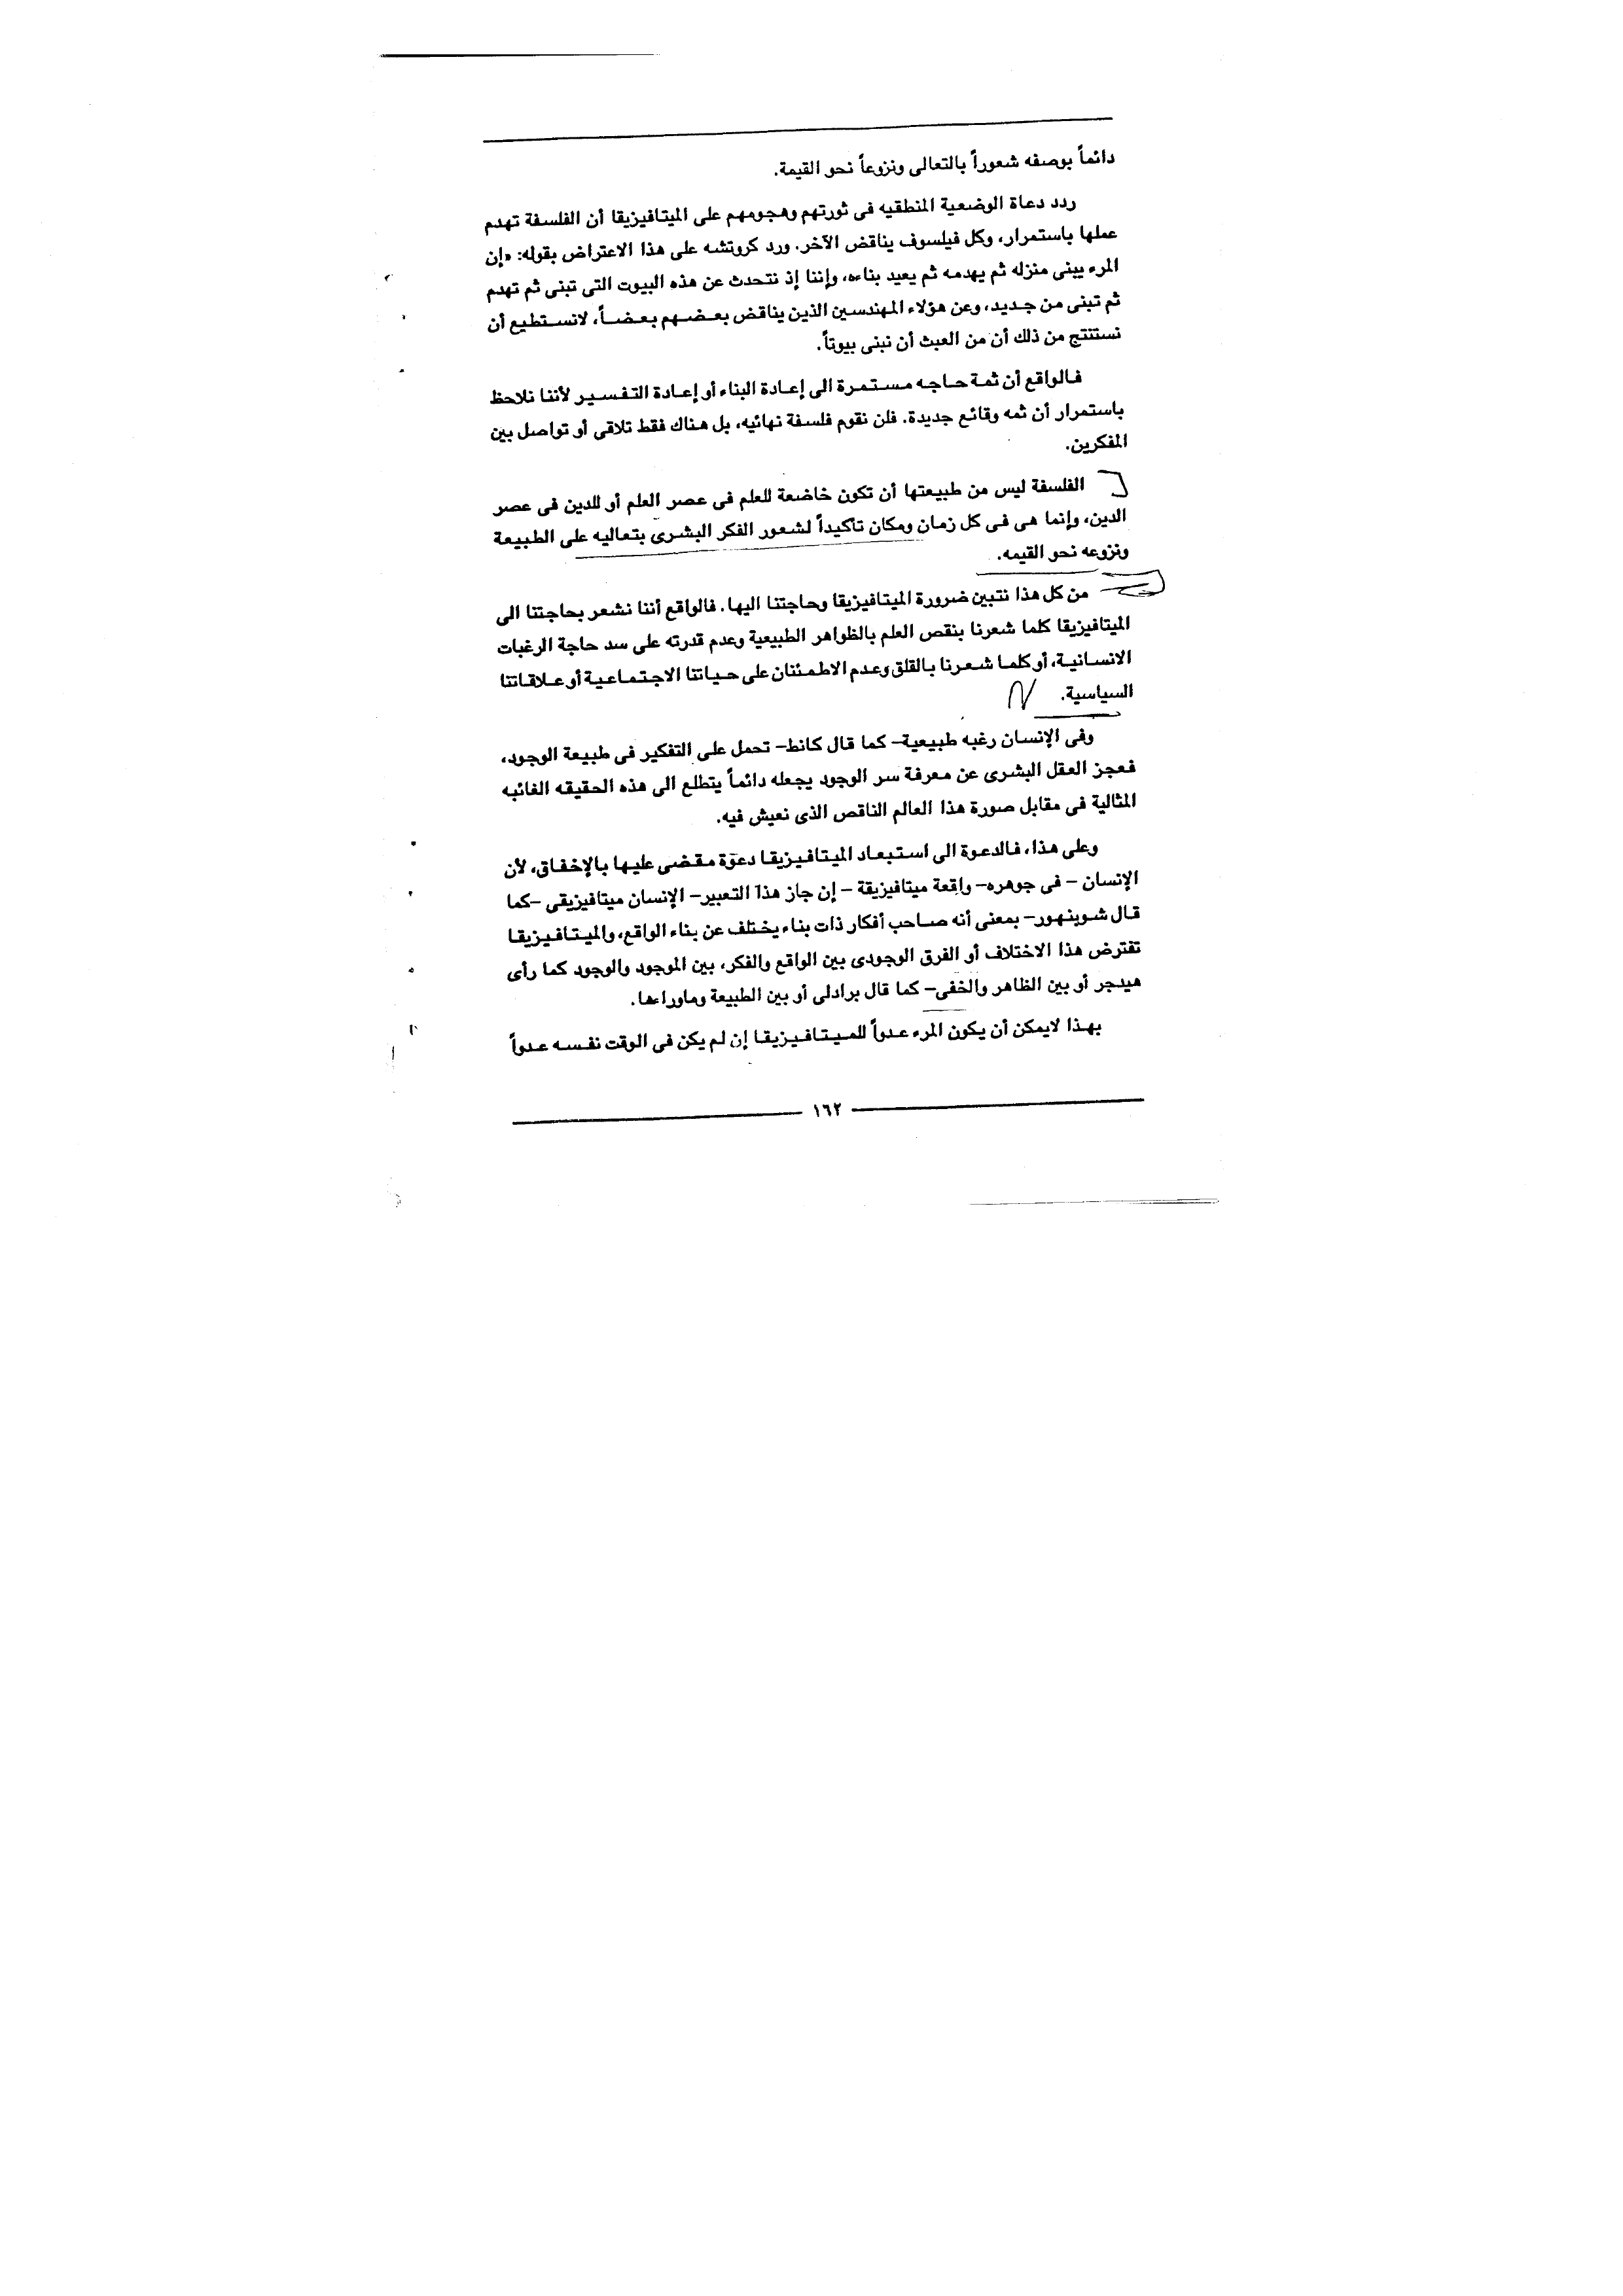 دائماً بوصفه شعوراً بالتعالى ونزوعاً نحو القيمة.
ردد دعاة الوضعية المنطقيه فى ثورتهم وهجومهم على الميتافيزيقا أن الفلسفة تهدم
عملها باستمرار، وكل فيلسوف يناقض الآخر. ورد كروتشه على هذا الاعتراض بقوله: «إن
المرء يبنى منزله ثم يهدمه ثم يعيد بناءه، وإننا إذ نتحدث عن هذه البيوت التى تبنى ثم تهدم
ثم تبنى من جديد، وعن هؤلاء المهندسين الذين يناقض بعضهم بعضاً، لانستطيع أن
نستنتج من ذلك أن من العبث أن نبنى بيوتاً.
فالواقع أن ثمة حاجه مستمرة الى إعادة البناء أو إعادة التفسير لأننا نلاحظ
باستمرار أن ثمه وقائع جديدة. فلن نقوم فلسفة نهائيه، بل هناك فقط تلاقى أو تواصل بين
المفكرين.
الفلسفة ليس من طبيعتها أن تكون خاضعة للعلم فى عصر العلم أو للدين فى عصر
الدين، وإنما هى فى كل زمان ومكان تأكيداً لشعور الفكر البشرى بتعاليه على الطبيعة
ونزوعه نحو القيمه.
من كل هذا نتبين ضرورة الميتافيزيقا وحاجتنا اليها. فالواقع أننا نشعر بحاجتنا الى
الميتافيزيقا كلما شعرنا بنقص العلم بالظواهر الطبيعية وعدم قدرته على سد حاجة الرغبات
الانسانية، أو كلما شعرنا بالقلق وعدم الاطمئنان على حياتنا الاجتماعية أو علاقاتنا
السياسية.
وفى الإنسان رغبه طبيعية- كما قال كانط- تحمل على التفكير فى طبيعة الوجود،
فعجز العقل البشرى عن معرفة سر الوجود يجعله دائماً يتطلع الى هذه الحقيقه الغائبه
المثالية فى مقابل صورة هذا العالم الناقص الذى نعيش فيه.
وعلى هذا، فالدعوة الى استبعاد الميتافيزيقا دعوة مقضى عليها بالإخفاق، لأن
الإنسان - فى جوهره- واقعة ميتافيزيقة - إن جاز هذا التعبير- الإنسان ميتافيزيقى -كما
قال شوبنهور- بمعنى أنه صاحب أفكار ذات بناء يختلف عن بناء الواقع، والميتافيزيقا
تفترض هذا الاختلاف أو الفرق الوجودى بين الواقع والفكر، بين الموجود والوجود كما رأى
هيدجر أو بين الظاهر والخفى- كما قال برادلى أو بين الطبيعة وماوراءها.
بهذا لايمكن أن يكون المرء عدواً للميتافيزيقا إن لم يكن فى الوقت نفسه عدواً
١٦٢